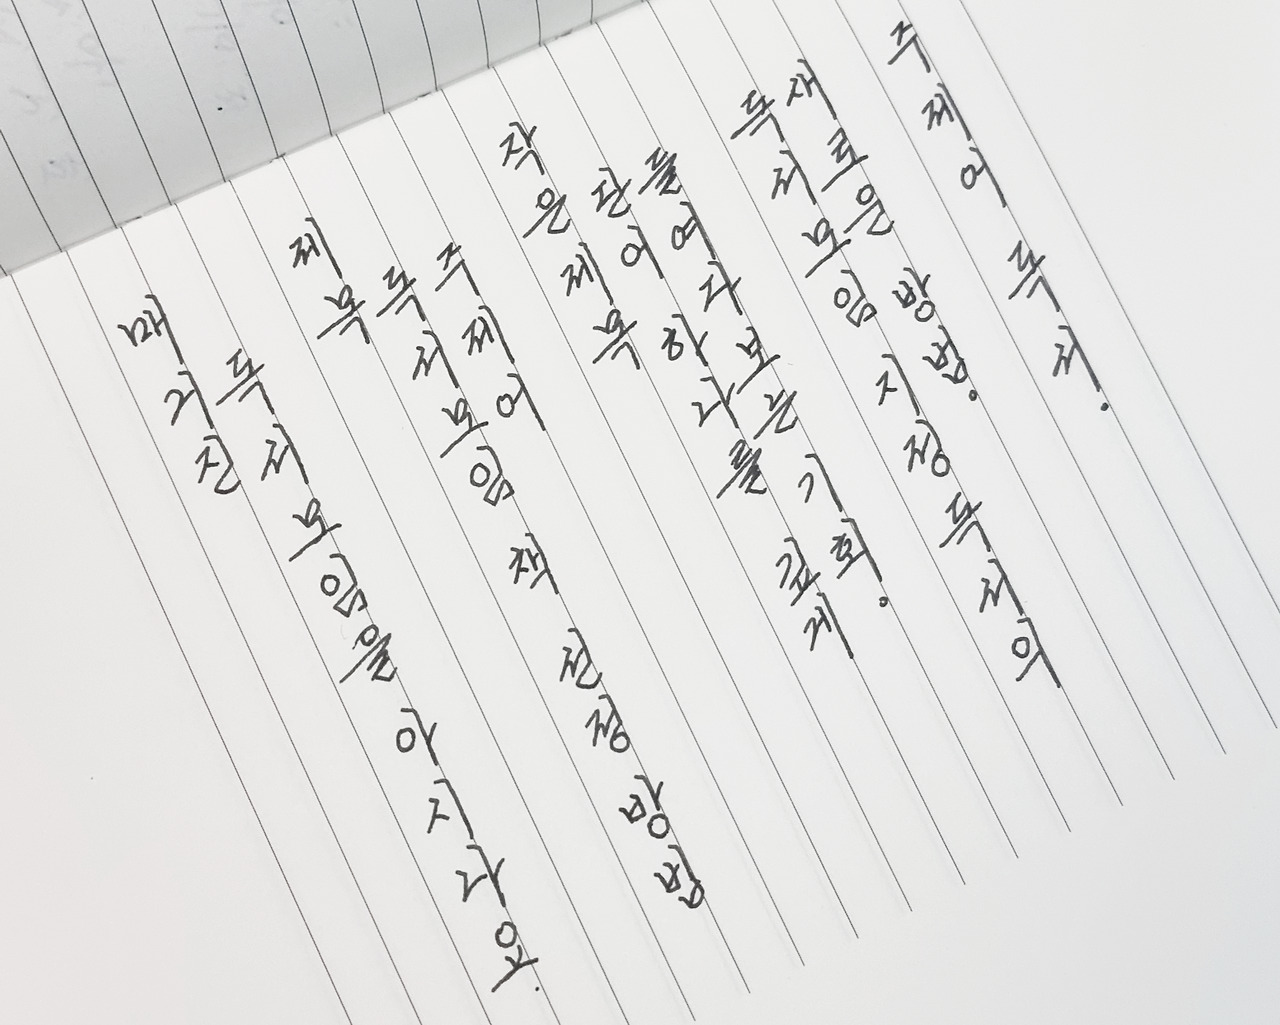 매거진
독서모임을 아시나요.
제목
독서모임 책 선정 방법
주제어
작은 제목
단어 하나를 깊게
들여다보는 기회.
독서모임 지정 독서의
새로운 방법.
주제어 독서.